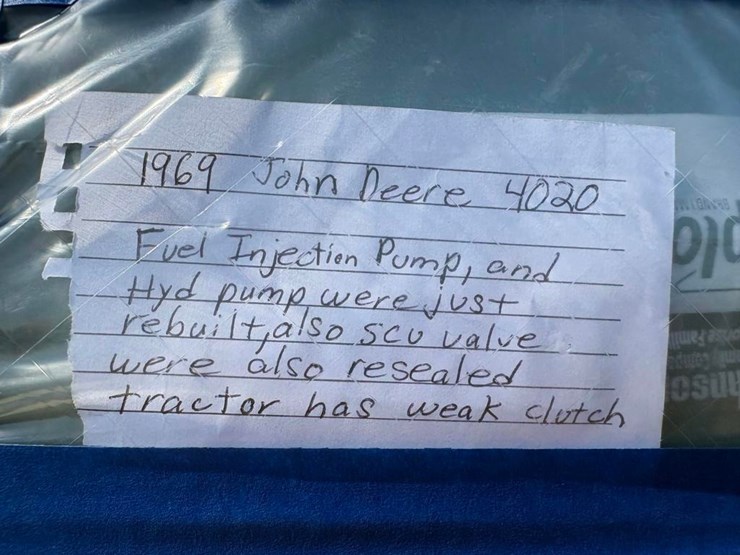 1969 John Deere 4020
Fuel Injection Pump, and
Hyd pump were just
rebuilt, also scv valve
were also resealed
tractor has weak clutch